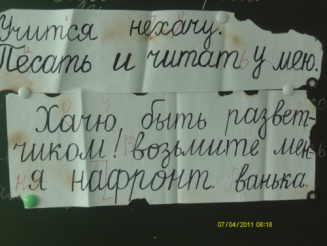 Учится нехачу.
Песать и читать у мею.
Хачю быть развет-
чиком! возьмите мен-
я нафронт. ванька.
07/04/2011 08:18